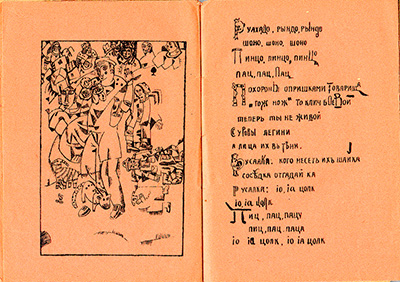 Руахадо, рындо, рындо
шоно, шоно, шоно
Пинцо, пинцо, пинцо
пац, пац, пац.
Похороны опришками товарища
„гож нож“ то клич боевой
теперь ты не живой
суровы легини
а лица их в тени.
Русалка. кого несетъ ихъ шайка
соседка отгадай ка
русалка: іо, іа цолк
іо, іа цолк
Пиц, пац, пацу
пиц, пац, паца
іо іа цолк, іо іа цолк